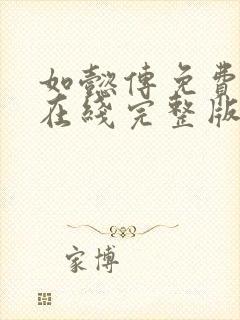 如懿传免費
在綫完整版
家博